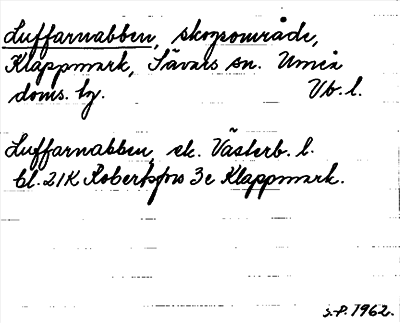 Luffarnabben, skogsområde,
Klappmark, Sävars sn. Umeå
doms. hg. Vb. l.
Luffarnabben, ek. Västerb. l.
bl. 21K Robertsfors 3e Klappmark.
S.P. 1962.